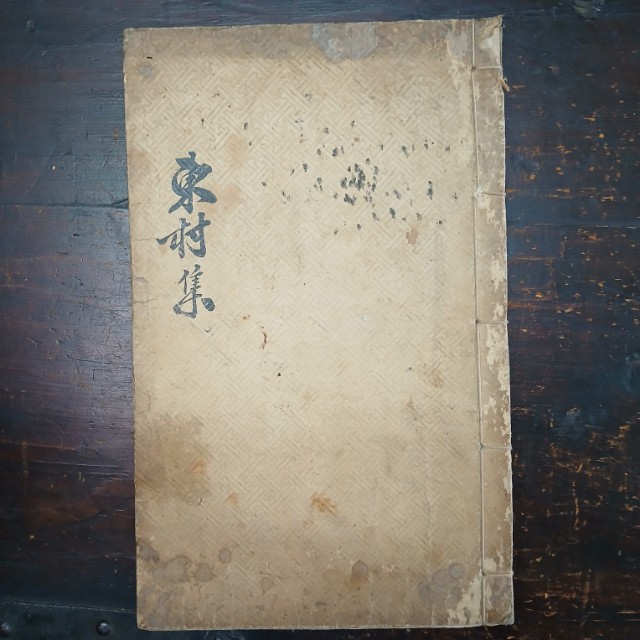 東村集